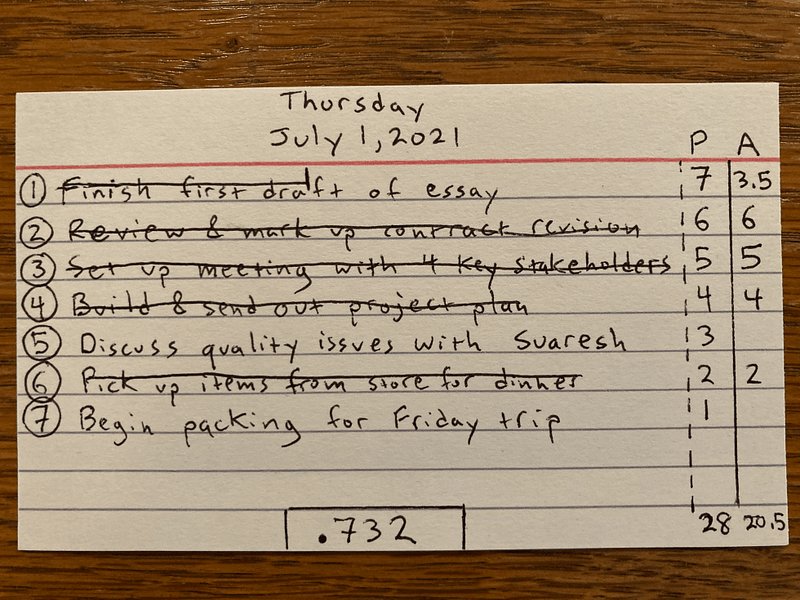 Thursday
July 1, 2021
P A
① Finish first draft of essay 7 3.5
② Review & mark up contract revision 6 6
③ Set up meeting with 4 key stakeholders 5 5
④ Build & send out project plan 4 4
⑤ Discuss quality issues with Suaresh 3
⑥ Pick up items from store for dinner 2 2
⑦ Begin packing for Friday trip 1
28 20.5
.732